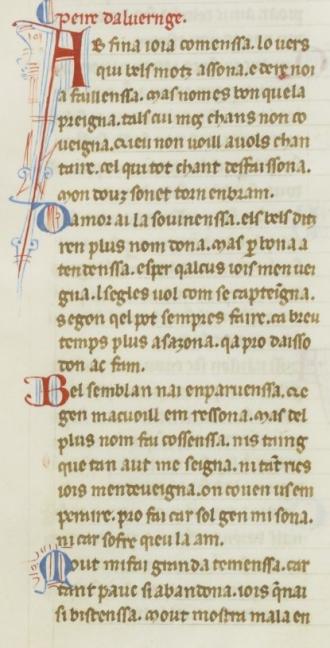 Peire daluernge.
AB fina ioia comenssa. lo uers
qui bels motz assona. e de re noi
a faillenssa. mas nomes bon que la
preigna. tals cui mos chans non co
ueigna. qieu non uoill auols chan
taire. cel qui tot chant desfaissona.
mon douz sonet torn en bram.
Damor ai la souinenssa. els bels ditz
ren plus nom dona. mas per bona a
tendenssa. esper qalcus iois men uei
gna. l segles uol com se capteigna.
segon qel pot sempres faire. ca breu
temps plus asazona. qa pro daisso
don ac fam.
Bel semblan nai en paruenssa. qe
gen macuoill em ressona. mas del
plus nom fai cossenssa. nis taing
que tan aut me seigna. ni tant rics
iois mendeueigna. on couen us em
peraire. pro fai car sol gen mi sona.
ni car sofre qieu la am.
Mout mi fai granda temenssa. car
tant pauc si abandona. iois qnai
si bistenssa. mout mostra mala en